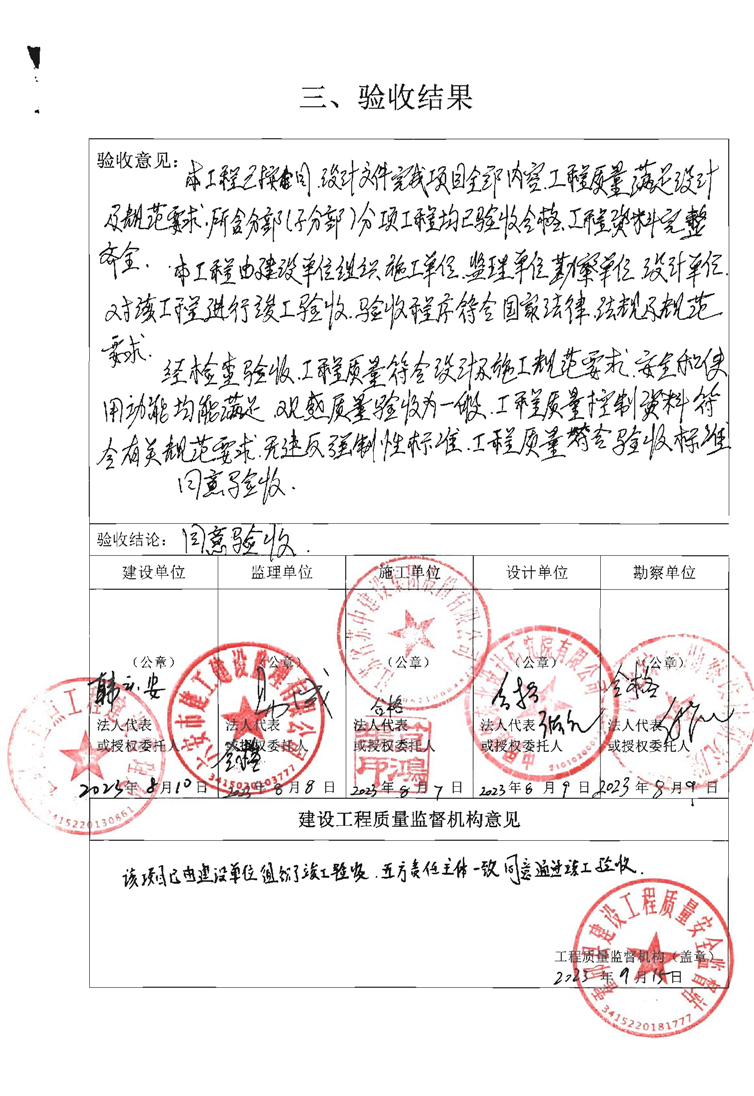 三、验收结果
验收意见：
本工程已按合同、设计文件完成项目全部内容，工程质量满足设计
及规范要求，所含分部（子分部）分项工程均已验收合格，工程资料完整
齐全。 本工程由建设单位组织施工单位、监理单位、勘察单位、设计单位、
对该工程进行竣工验收，验收程序符合国家法律、法规及规范
要求。
经检查验收，工程质量符合设计及施工规范要求，安全和使
用功能均能满足，观感质量验收为一般，工程质量控制资料符
合有关规范要求，无违反强制性标准，工程质量符合验收标准
同意验收．
验收结论： 同意验收．
建设单位 监理单位 施工单位 设计单位 勘察单位
（公章） （公章） （公章） （公章） （公章）
合格 合格 合格
法人代表 法人代表 法人代表 法人代表 法人代表
或授权委托人 或授权委托人 或授权委托人 或授权委托人 或授权委托人
合格
2023年8月10日 2023年8月8日 2023年8月7日 2023年8月9日 2023年8月9日
六安市建工建设监理有限公司
3415030003777
3415220130861
建设工程质量监督机构意见
该项目已由建设单位组织了竣工验收，五方责任主体一致同意通过竣工验收．
工程质量监督机构（盖章）
2023年9月15日
霍邱县建设工程质量安全监督站
3415220181777